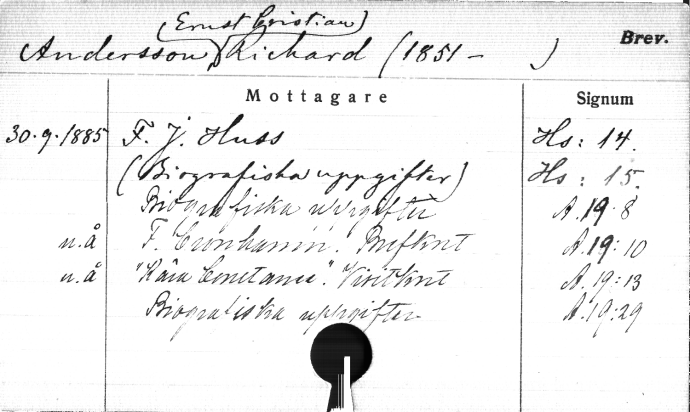 (Ernst Cristian)
Andersson, Richard (1851 - ) Brev.
Mottagare Signum
30.9.1885 F. J. Huss Hs: 14.
(Biografiska uppgifter) Hs: 15.
Biografiska uppgifter A.19:8
u.å F. Cronhamn. Brefkort A.19:10
u.å "Kära Constance". Visitkort A.19:13
Biografiska uppgifter A.19:29